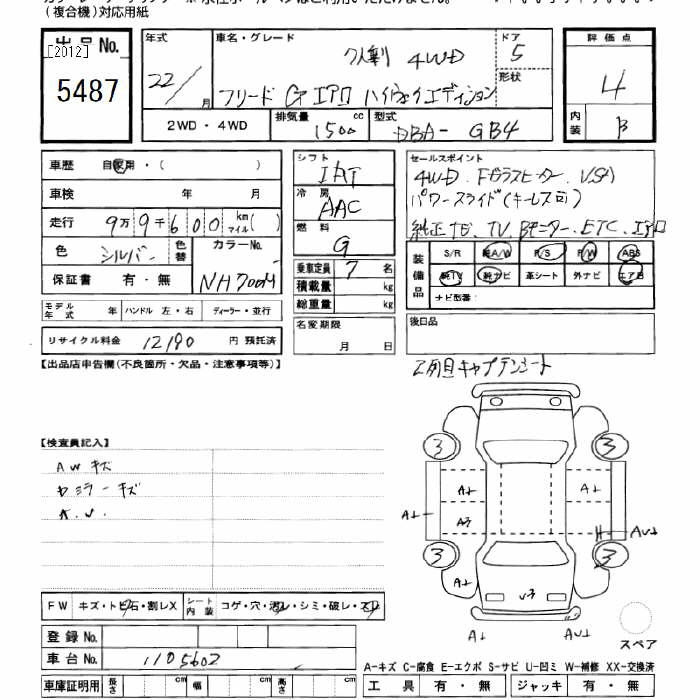 (複合機)対応用紙
出品No.
[2012]
5487
年式
22/
月
車名・グレード
7人乗り 4WD
フリード G エアロ ハイウェイエディション
ドア
5
形状
評価点
4
内装
B
2WD・4WD
排気量
1500
cc
型式
DBA- GB4
車歴
自家用・( )
車検
年 月
走行
9万9千600
km
マイル( )
色
シルバー
色替
カラーNo.
NH700M
保証書
有・無
モデル年式
年
ハンドル 左・右
ディーラー・並行
リサイクル料金
12190
円 預託済
シフト
IAT
冷房
AAC
燃料
G
乗車定員
7
名
積載量
kg
総重量
kg
名変期限
月 日
セールスポイント
4WD、Fガラスヒーター、VSA
パワースライド(キーレス可)
純正ナビ、TV、Bモニター、ETC、エアロ
装備品
S/R
純A/W
P/S
P/W
ABS
純TV
純ナビ
革シート
外ナビ
エアB
ナビ型番:
後日品
【出品店申告欄(不良箇所・欠品・注意事項等)】
2列目キャプテンシート
【検査員記入】
AWキズ
ミラーキズ
3
3
3
3
A1
A1
A1
A3
A1
AU1
A1
U3
A1
AU1
スペア
FW
キズ・トビ石・割レX
シート内装
コゲ・穴・汚レ・シミ・破レ・スレ
登録No.
車台No.
1105602
車庫証明用
長さ
cm
幅
cm
高さ
cm
A-キズ C-腐食 E-エクボ S-サビ U-凹ミ W-補修 XX-交換済
工具 有・無
ジャッキ 有・無